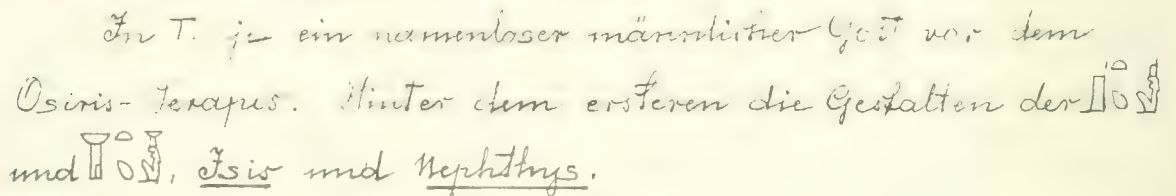 In T. je ein namenloser männlicher Gott vor dem
Osiris-Serapis. Hinter dem ersteren die Gestalten der 𓊨𓏏𓆇𓁐
und 𓉠𓏏𓆇𓁐, Isis und Nephthys.